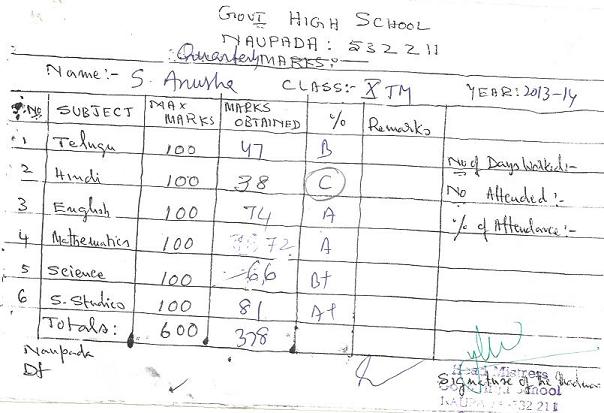 GOVT HIGH SCHOOL
NAUPADA: 532211
Quarterly MARKS:-
Name:- S. Anusha CLASS:- X TM YEAR: 2013-14
No SUBJECT MAX MARKS MARKS OBTAINED % Remarks
1 Telugu 100 47 B
2 Hindi 100 38 C
3 English 100 74 A
4 Mathematics 100 72 A
5 Science 100 66 B+
6 S. Studies 100 81 A+
Totals: 600 378
No of Days Worked:-
No Attended:-
% of Attendance:-
Naupada
Dt
Head Mistress
Signature of the
School